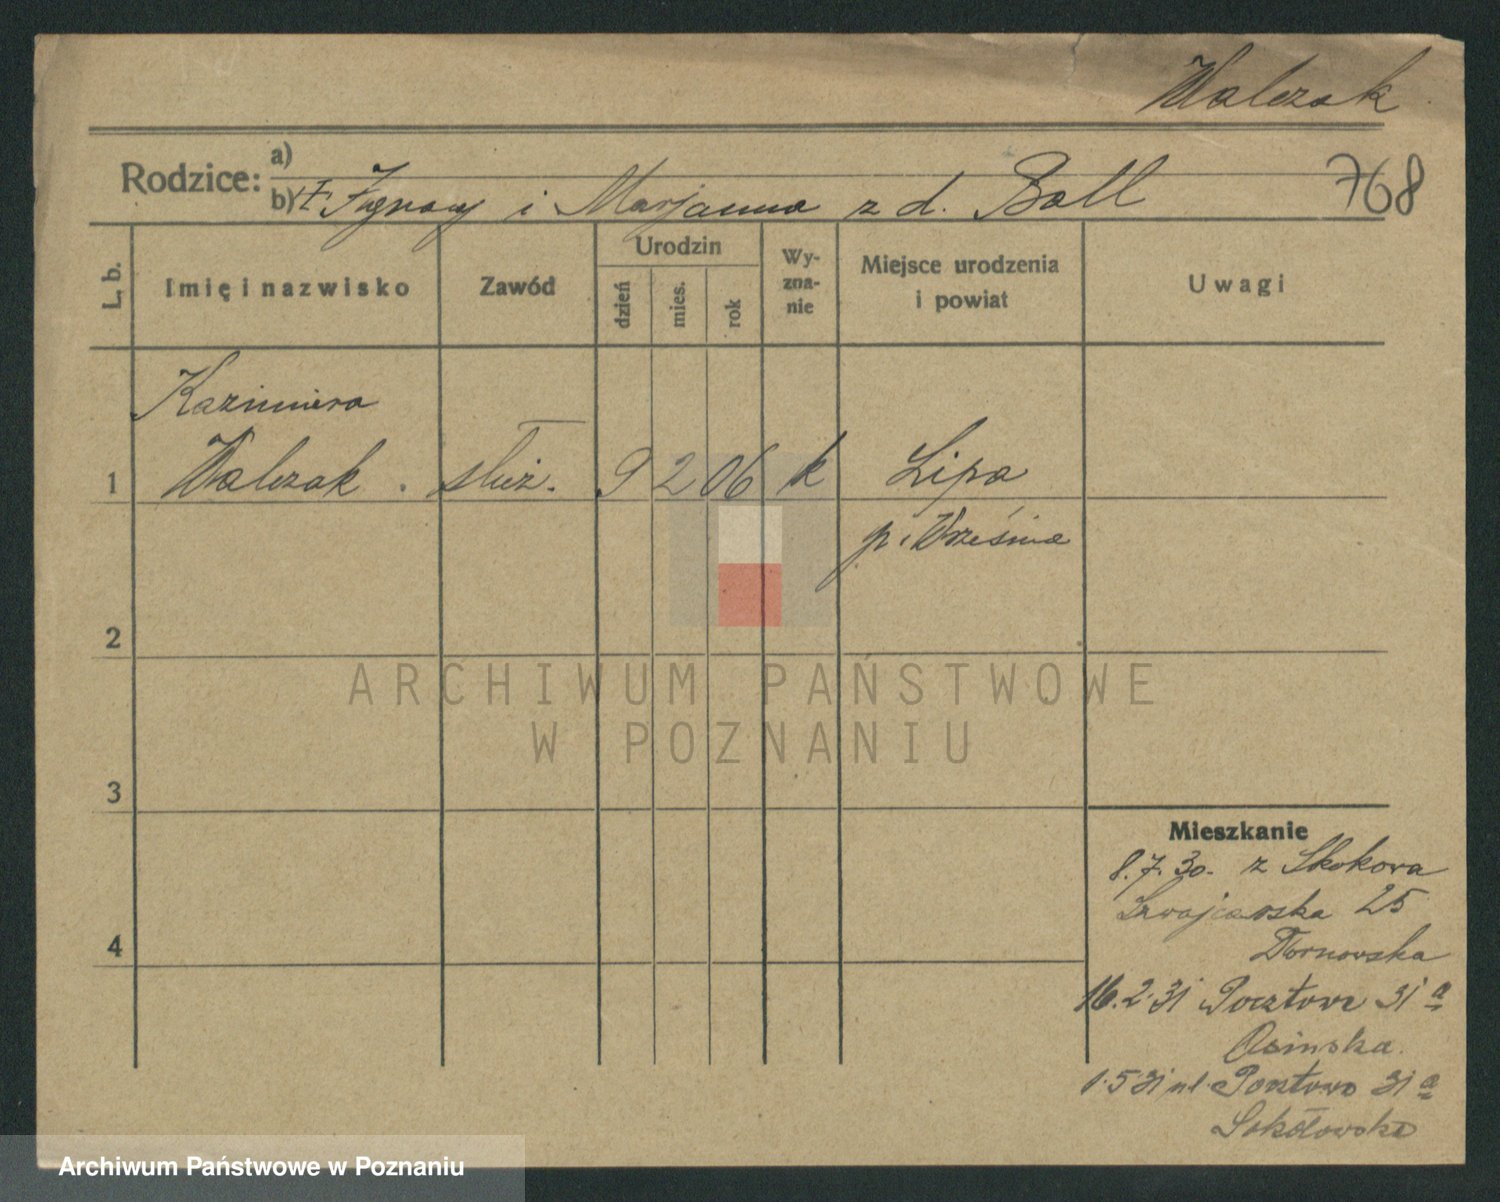 Walczak
Rodzice: a)
768
b) Ignacy i Marjanna z d. Ball
L. b.
Imię i nazwisko
Zawód
Urodzin
dzień
mies.
rok
Wy-
zna-
nie
Miejsce urodzenia
i powiat
Uwagi
Kazimiera
1 Walczak. służ. 9 2 06 k Lipa
p. Września
2
ARCHIWUM PAŃSTWOWE
W POZNANIU
3
Mieszkanie
8.7.30. z Skokowa
Szwajcarska 25
4
Tornowska
16.2.31 Pocztowa 31 a
Osinska.
1.5.31 ul. Pocztowa 31 a
Sokołowski
Archiwum Państwowe w Poznaniu